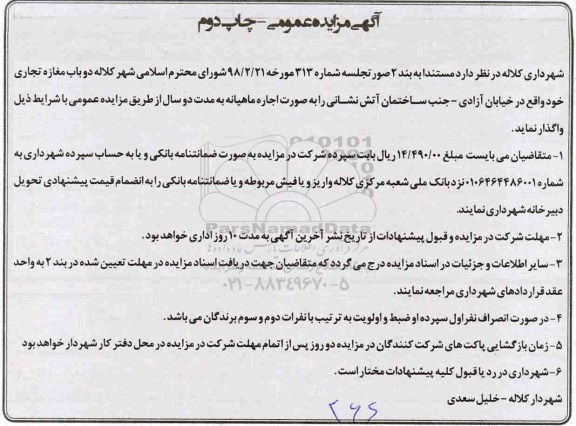 آگهی مزایده عمومی - چاپ دوم
شهرداری کلاله در نظر دارد مستندا به بند ۲ صورتجلسه شماره ۳۱۳ مورخه ۹۸/۲/۲۱ شورای محترم اسلامی شهر کلاله دو باب مغازه تجاری
خود واقع در خیابان آزادی - جنب ساختمان آتش نشانی را به صورت اجاره ماهیانه به مدت دو سال از طریق مزایده عمومی با شرایط ذیل
واگذار نماید.
۱- متقاضیان می بایست مبلغ ۱۴/۴۹۰/۰۰ ریال بابت سپرده شرکت در مزایده به صورت ضمانتنامه بانکی و یا به حساب سپرده شهرداری به
شماره ۰۱۰۶۴۶۴۴۸۶۰۰۱ نزد بانک ملی شعبه مرکزی کلاله واریز و یا فیش مربوطه و یا ضمانتنامه بانکی را به انضمام قیمت پیشنهادی تحویل
دبیرخانه شهرداری نمایند.
۲- مهلت شرکت در مزایده و قبول پیشنهادات از تاریخ نشر آخرین آگهی به مدت ۱۰ روز اداری خواهد بود.
۳- سایر اطلاعات و جزئیات در اسناد مزایده درج می گردد که متقاضیان جهت دریافت اسناد مزایده در مهلت تعیین شده در بند ۲ به واحد
عقد قراردادهای شهرداری مراجعه نمایند.
۴- در صورت انصراف نفر اول سپرده او ضبط و اولویت به ترتیب با نفرات دوم و سوم برندگان می باشد.
۵- زمان بازگشایی پاکت های شرکت کنندگان در مزایده دو روز پس از اتمام مهلت شرکت در مزایده در محل دفتر کار شهردار خواهد بود
۶- شهرداری در رد یا قبول کلیه پیشنهادات مختار است.
شهردار کلاله - خلیل سعدی
ParsNamadData
۰۲۱-۸۸۳۴۹۶۷۰-۵